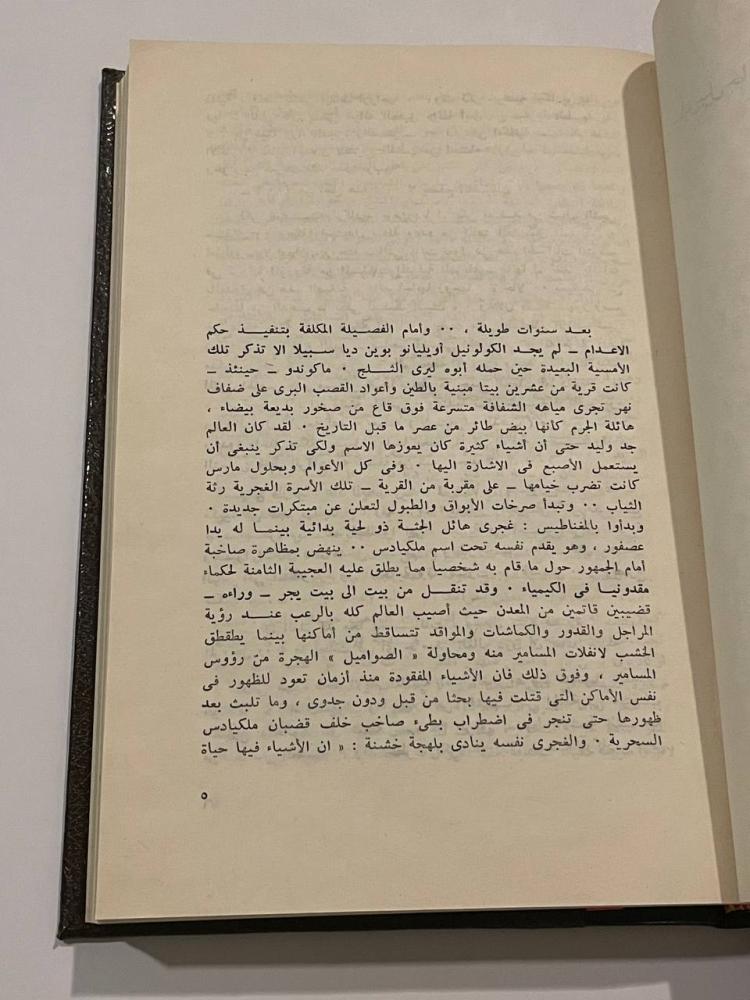 بعد سنوات طويلة ، ٠٠ وأمام الفصيلة المكلفة بتنفيذ حكم
الاعدام ــ لم يجد الكولونيل أويليانو بوين ديا سبيلا الا تذكر تلك
الأمسية البعيدة حين حمله أبوه ليرى الثلج ٠ ماكوندو ــ حينئذ ــ
كانت قرية من عشرين بيتا مبنية بالطين وأعواد القصب البرى على ضفاف
نهر تجرى مياهه الشفافة متسرعة فوق قاع من صخور بديعة بيضاء ،
هائلة الجرم كانها بيض طائر من عصر ما قبل التاريخ ٠ لقد كان العالم
جد وليد حتى أن أشياء كثيرة كان يعوزها الاسم ولكى تذكر ينبغى أن
يستعمل الأصبع فى الاشارة اليها ٠ وفى كل الأعوام وبحلول مارس
كانت تضرب خيامها ــ على مقربة من القرية ــ تلك الأسرة الفجرية رثة
الثياب ٠٠ وتبدأ صرخات الأبواق والطبول لتعلن عن مبتكرات جديدة ٠
وبدأوا بالمغناطيس : غجرى هائل الجثة ذو لحية بدائية بينما له يدا
عصفور ، وهو يقدم نفسه تحت اسم ملكيادس ٠٠ ينهض بمظاهرة صاخبة
أمام الجمهور حول ما قام به شخصيا مما يطلق عليه العجيبة الثامنة لحكماء
مقدونيا فى الكيمياء ٠ وقد تنقل من بيت الى بيت يجر ــ وراءه ــ
قضيبين قاتمين من المعدن حيث أصيب العالم كله بالرعب عند رؤية
المراجل والقدور والكماشات والمواقد تتساقط من أماكنها بينما يطقطق
الخشب لانفلات المسامير منه ومحاولة « الصواميل » الهجرة من رؤوس
المسامير ، وفوق ذلك فان الأشياء المفقودة منذ أزمان تعود للظهور فى
نفس الأماكن التى قتلت فيها بحثا من قبل ودون جدوى ، وما تلبث بعد
ظهورها حتى تنجر فى اضطراب بطىء صاخب خلف قضبان ملكيادس
السحرية ٠ والفجرى نفسه ينادى بلهجة خشنة : « ان الأشياء فيها حياة
٥